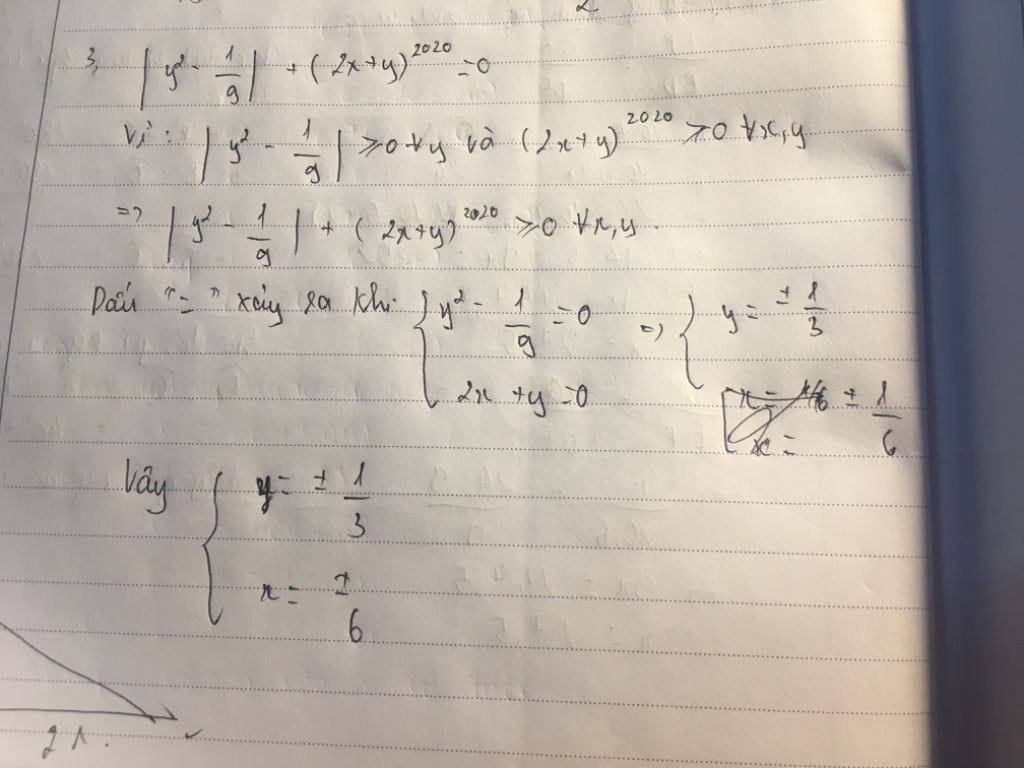 3, | y² - 1/9 | + ( 2x+y)²⁰²⁰ =0
Vì : | y² - 1/9 | ≥0 ∀y và (2x+y)²⁰²⁰ ≥0 ∀x,y
=> | y² - 1/9 | + ( 2x+y)²⁰²⁰ ≥0 ∀x,y.
Dấu "=" xảy ra khi { y² - 1/9 =0 => { y= ± 1/3
2x +y =0 x= ± 1/6
x=
Vậy { y= ± 1/3
x= ± 6
2 1.